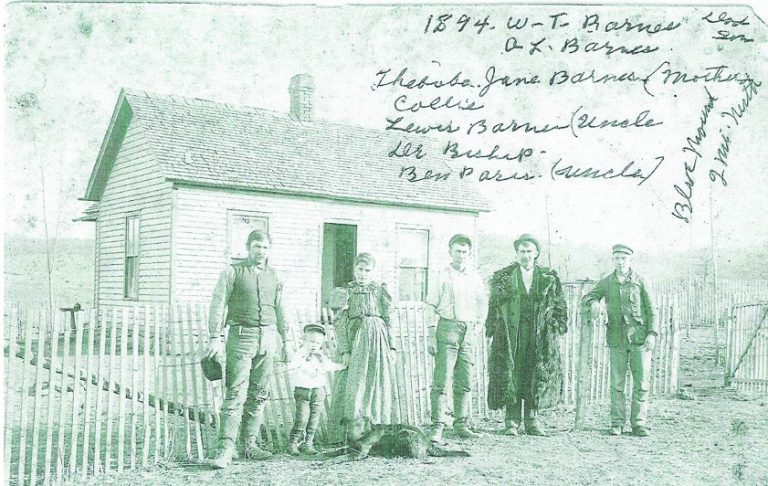 1894. W-T- Barnes Dad
O L. Barnes Son
Theboba Jane Barnes (Mother)
Collie
Lewis Barnes (Uncle
Dr Bishop.
Ben Paris. (Uncle)
Blue Mound
2 mi. North